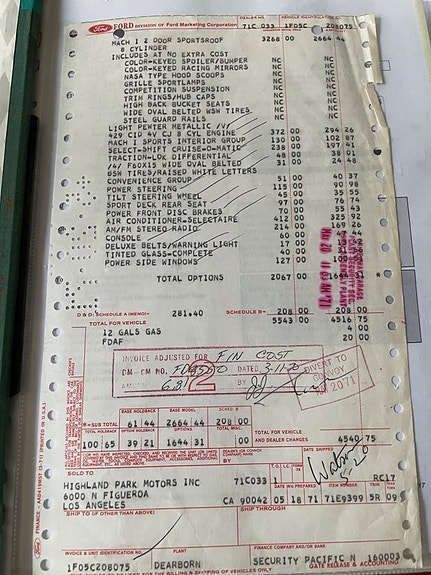 Ford
FORD DIVISION OF Ford Marketing Corporation 71C 033 1F05C 208075
MACH 1 2 DOOR SPORTSROOF 3268 00 2664 44
8 CYLINDER
INCLUDES AT NO EXTRA COST
COLOR-KEYED SPOILER/BUMPER NC NC
COLOR-KEYED RACING MIRRORS NC NC
NASA TYPE HOOD SCOOPS NC NC
GRILLE SPORTLAMPS NC NC
COMPETITION SUSPENSION NC NC
TRIM RINGS/HUB CAPS NC NC
HIGH BACK BUCKET SEATS NC NC
WIDE OVAL BELTED WSW TIRES NC NC
STEEL GUARD RAILS NC NC
LIGHT PEWTER METALLIC /V/
429 CID 4V CJ 8 CYL ENGINE 372 00 294 26
MACH I SPORTS INTERIOR GROUP 130 00 102 87
SELECT-SHIFT CRUISE-O-MATIC 238 00 197 41
TRACTION-LOK DIFFERENTIAL 48 00 38 01
/4/ F60X15 WIDE OVAL BELTED 31 00 24 48
BSW TIRES/RAISED WHITE LETTERS
CONVENIENCE GROUP 51 00 40 37
POWER STEERING 115 00 90 98
TILT STEERING WHEEL 45 00 35 55
SPORT DECK REAR SEAT 97 00 76 74
POWER FRONT DISC BRAKES 70 00 55 43
AIR CONDITIONER-SELECTAIRE 412 00 325 92
AM/FM STEREO RADIO 214 00 169 26
CONSOLE 60 00 47 44
DELUXE BELTS/WARNING LIGHT 17 00 13 42
TINTED GLASS-COMPLETE 40 00
POWER SIDE WINDOWS 127 00
TOTAL OPTIONS 2067 00
D & D: SCHEDULE A (MEMO)- 281.40 SCHEDULE B- 208 00 208 00
TOTAL FOR VEHICLE 5543 00 4516 75
12 GALS GAS 4 00
FDAF 20 00
INVOICE ADJUSTED FOR FIN COST
DM - CM NO. DATED 3-11-70
AMOUNT 6.81
2
DIVERT TO
CONVOY
MAY 20 71
BASE HOLDBACK BASE MODEL SCHED. B
B-SUB TOTAL 61 44 2664 44 208 00
TOTAL HOLDBACK OPTION HOLDBACK OPTIONS TOTAL MISC. TOTAL FOR VEHICLE
100 65 39 21 1644 31 AND DEALER CHARGES 4540 75
SOLD TO DATE SHIPPED
HIGHLAND PARK MOTORS INC 71C033 RC17
6000 N FIGUEROA DATE INV. PREPARED
LOS ANGELES CA 90042 05 18 71 71E9399 5R 09
SHIP TO (IF OTHER THAN ABOVE) SHIP THROUGH
INVOICE & UNIT IDENTIFICATION NO. PLANT FINANCE COMPANY AND/OR BANK
1F05C208075 DEARBORN SECURITY PACIFIC N 160003
GATE RELEASE & ACCOUNTING